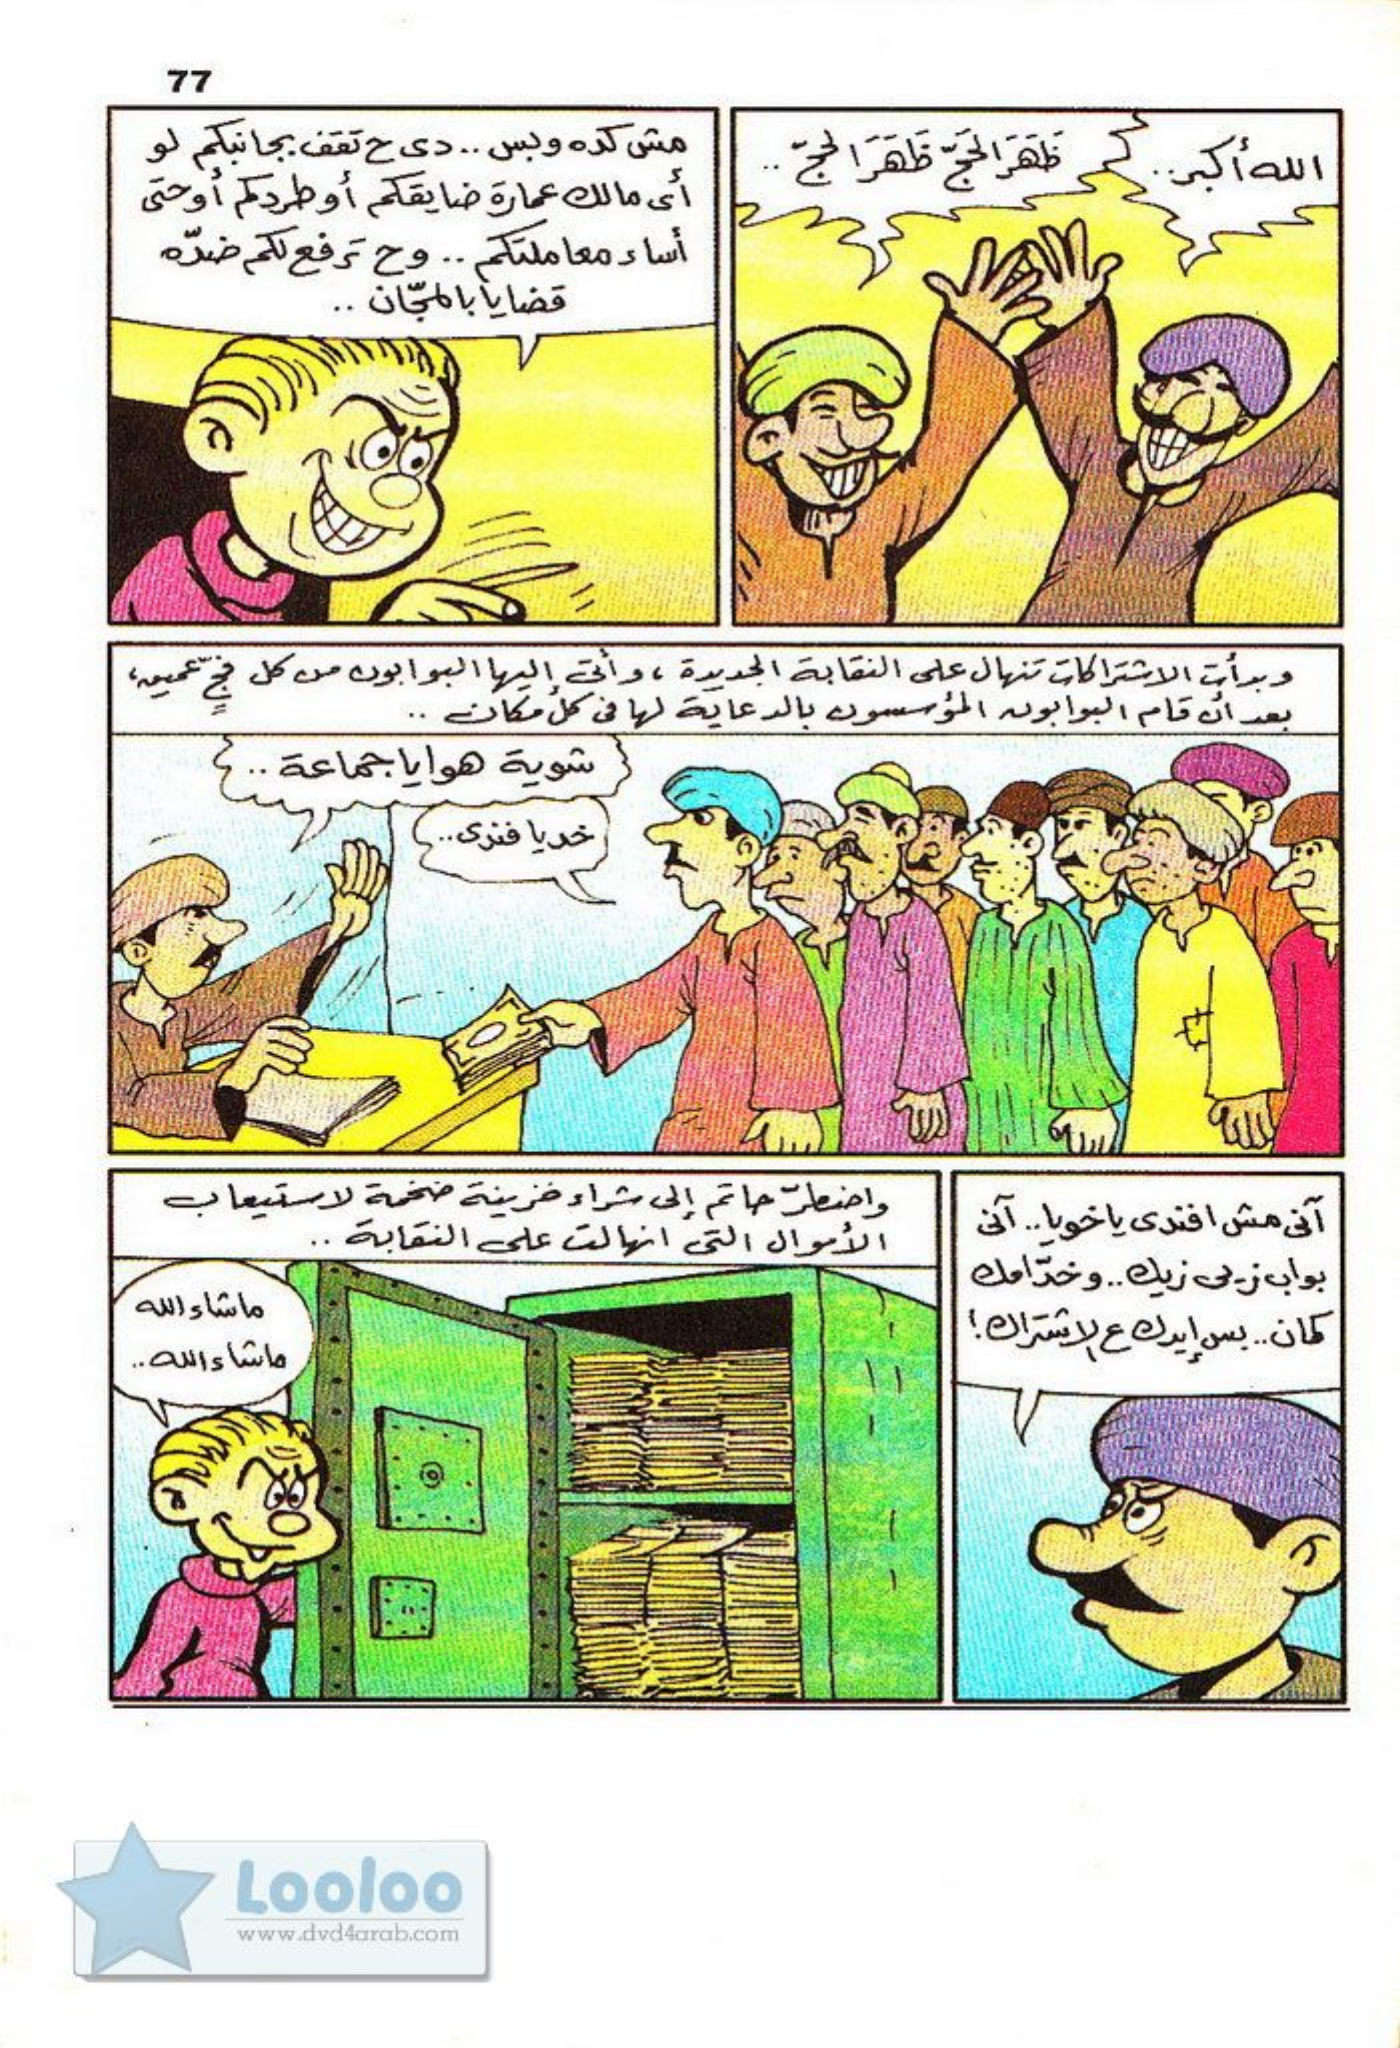 77
الله أكبر..
ظَهَرَ الحَجّ ظَهَرَ الحَجّ..
مش كده وبس.. دى ح تقف بجانبكم لو
أى مالك عمارة ضايقكم أو طردكم أو حتى
أساء معاملتكم.. وح ترفع لكم ضدّه
قضايا بالمجّان..
وبدأت الاشتراكات تنهال على النقابة الجديدة، وأتى إليها البوابون من كل فجٍّ عميق،
بعد أن قام البوابون المؤسسون بالدعاية لها فى كل مكان..
شوية هوايا جماعة..
خد يا فندى..
آنى مش افندى ياخويا.. آنى
بواب زيى زيك.. وخدّامك
كمان.. بس إيدك ع الاشتراك!
واضطرّ حاتم إلى شراء خزينة ضخمة لاستيعاب
الأموال التى انهالت على النقابة..
ماشاء الله
ماشاء الله..
Looloo
www.dvd4arab.com